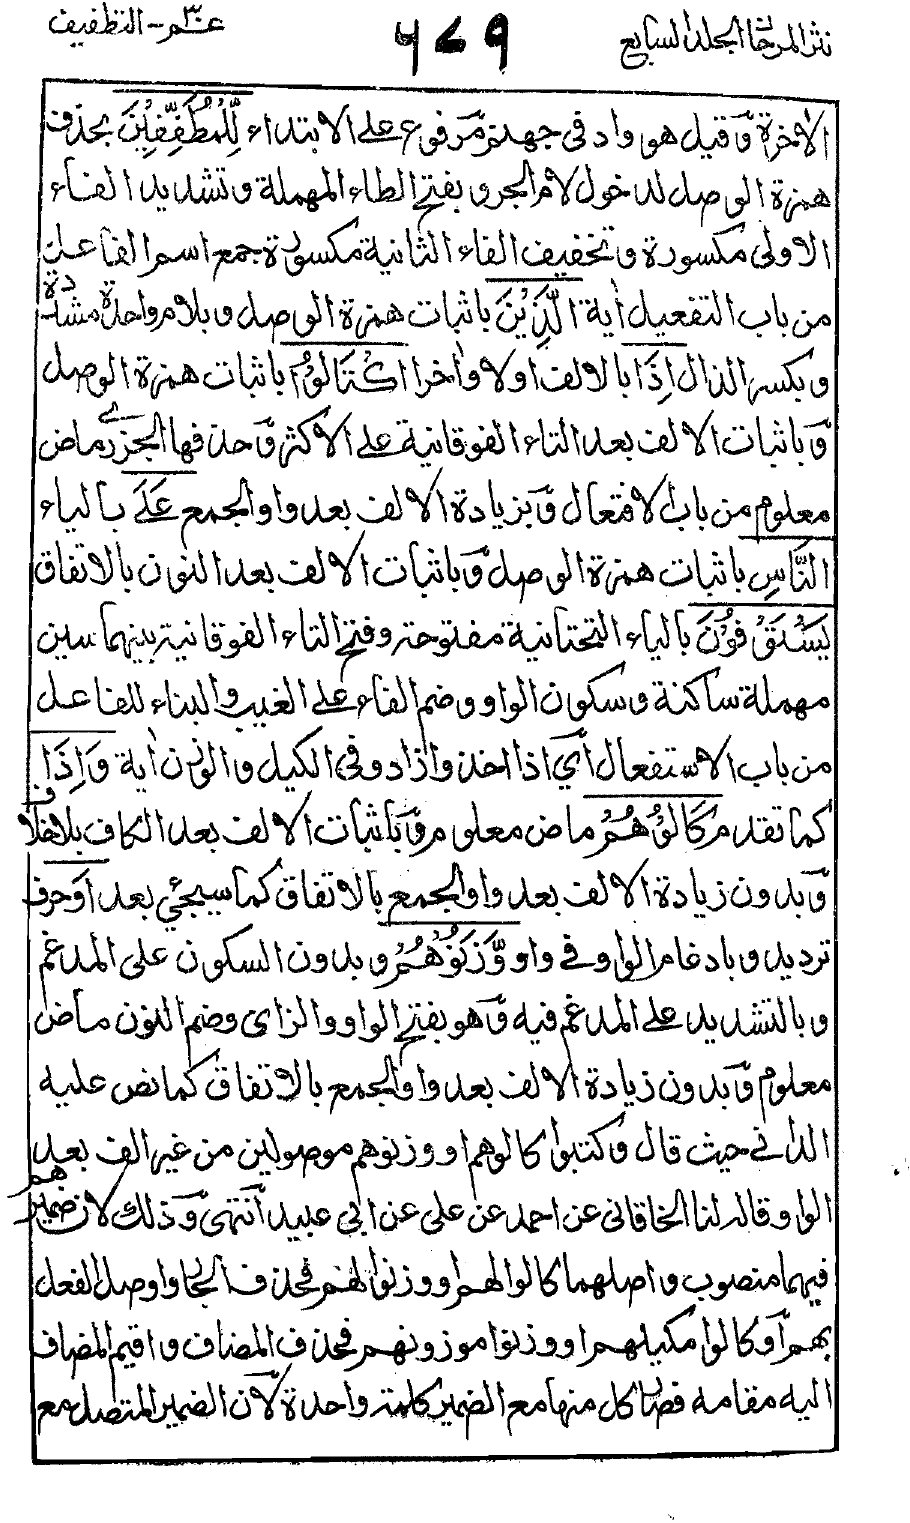 نثر المرجان المجلد السابع
٧٧٩
عم٣٠ - التطفيف
الاخرة وَقيل هو واد فى جهنم مرفوع على الابتداء لِّلْمُطَفِّفِيْنَ بحذف
همزة الوصل لدخول لام الجر وبفتح الطاء المهملة وتشديد الفاء
الاولى مكسورة وتخفيف الفاء الثانية مكسورة جمع اسم الفاعل
من باب التفعيل اٰية الَّذِيْنَ باثبات همزة الوصل وبلام واحدة مشددة
وبكسر الذال اِذَا بالالف اولا واٰخرا اكْتَالُوْا باثبات همزة الوصل
وَباثبات الالف بعد التاء الفوقانية على الاكثر وَحذفها الجزرى ماض
معلوم من باب الافتعال وَبزيادة الالف بعد واو الجمع عَلَى بالياء
النَّاسِ باثبات همزة الوصل وَباثبات الالف بعد النون بالاتفاق
يَسْتَوْفُوْنَ بالياء التحتانية مفتوحة وفتح التاء الفوقانية بينهما سين
مهملة ساكنة وسكون الواو وضم الفاء على الغيب والبناء للفاعل
من باب الاستفعال اَى اذا اخذوا زادوا فى الكيل والوزن اٰية وَاِذَا
كما تقدم كَالُوْهُمْ ماض معلوم وَباثبات الالف بعد الكاف بلا خلاف
وَبدون زيادة الالف بعد واو الجمع بالاتفاق كما سيجئ بعد اَوْ حرف
ترديد وبادغام الواو فى واو وَّزَنُوْهُمْ وبدون السكون على المدغم
وبالتشديد على المدغم فيه وَهو بفتح الواو والزاى وضم النون ماض
معلوم وَبدون زيادة الالف بعد واو الجمع بالاتفاق كما نص عليه
الدانى حيث قال وكتبوا كالوهم او وزنوهم موصولين من غير الف بعد
الواو وقاله لنا الخاقانى عن احمد عن على عن ابى عبيد انتهى وَذلك لان ضمير هم
فيهما منصوب واصلهما كالوا لهم او وزنوا لهم فحذف الجار واوصل الفعل
بهم اَو كالوا مكيلهم او وزنوا موزونهم فحذف المضاف واقيم المضاف
اليه مقامه فصار كل منها مع الضمير كلمة واحدة لاَن الضمير المتصل مع